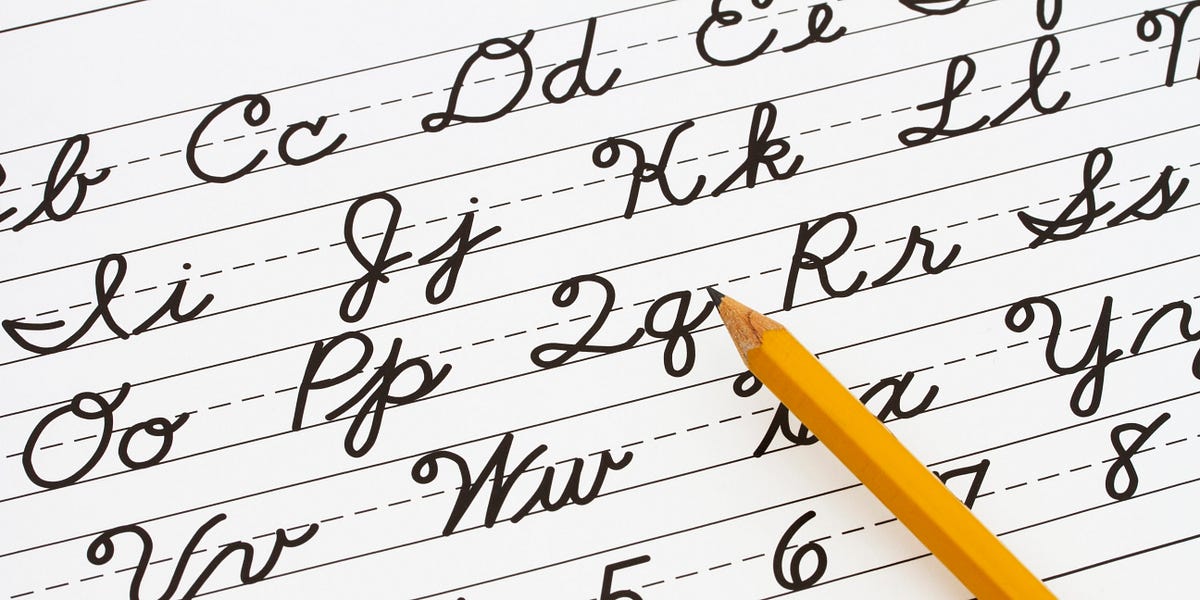 b Cc Dd Ee
Ii Jj Kk Ll
Oo Pp Qq Rr Ss
Vv Ww x Yy
5 6 7 8